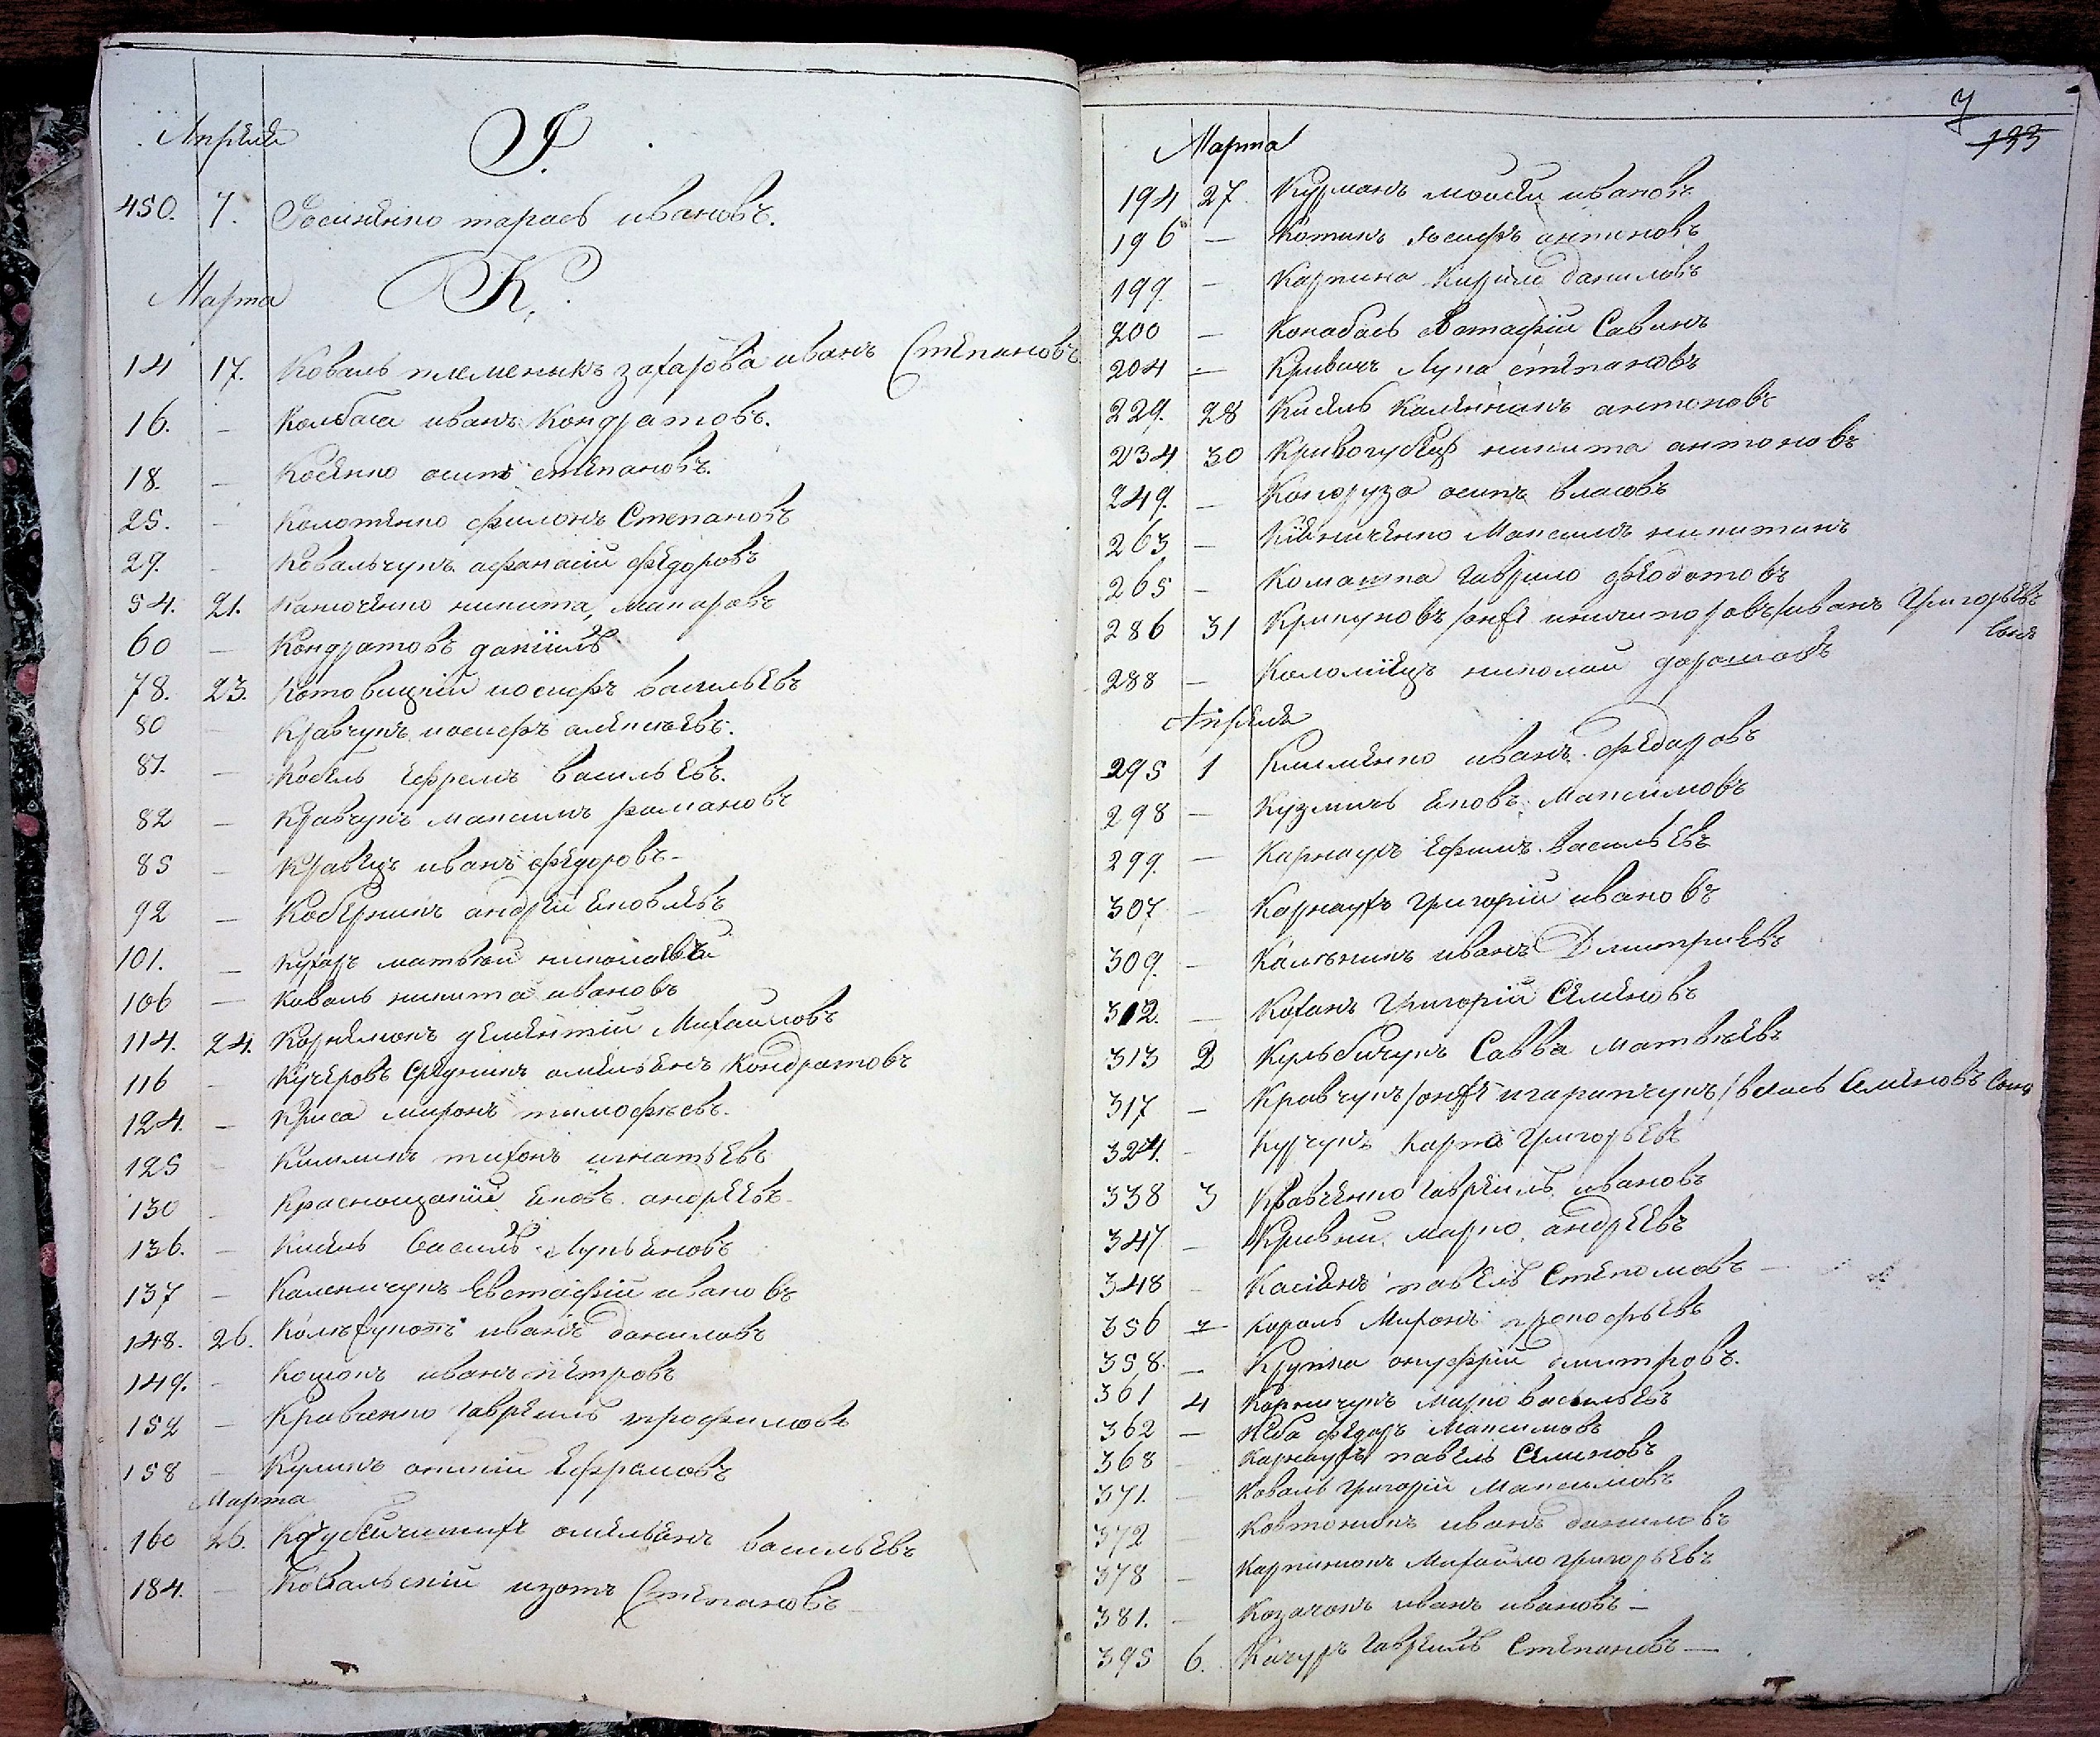 Апреля
І.
450. 7. Іосипенко тарасъ ивановъ.
Марта
К.
14 17. Коваль племеникъ захарова иванъ Степановъ
16. – Колбаса иванъ Кондратовъ.
18. – Косенко осипъ степановъ.
25. – Колотенко филонъ Степановъ
29. – Ковальчукъ афанасій федоровъ
54. 21. Каноченко никита макаровъ
60 – Кондратовъ даніилъ
78. 23. Котовицкій иосифъ васильевъ
80 – Кравчукъ иосифъ алексеевъ.
81. – Кисель ефремъ васильевъ.
82 – Кравчукъ максимъ романовъ
85 – Кравецъ иванъ федоровъ –
92 – Коберникъ андрей яковлевъ
101. – Кухаръ матвей николаевъ
106 – Коваль никита ивановъ
114. 24. Корнемонъ дементій Михайловъ
116 – Кучеровъ омельянъ Кондратовъ
124. – Криса миронъ тимофѣевъ.
125 – Килимъ тихонъ игнатьевъ
130 – Краснощокій яковъ андреевъ –
136. – Кисель василь Лукьяновъ
137 – Каленичукъ Евстафій ивановъ
148. 26. иванъ даниловъ
149. – Коцюкъ иванъ петровъ
152 – Кравченко гавреилъ трофимовъ
158 – Куликъ Ефремовъ
Марта
160 26. омельянъ васильевъ
184. – Ковальскій изотъ Степановъ –
7
133
Марта
194 27. Курманъ мойсей ивановъ
196 – Котикъ Іосифъ антиповъ
199. – Карпина Кирило даниловъ
200 – Евстафій Савинъ
204 – Кривичъ Лука степановъ
229. 28 Кисель Каленникъ антоновъ
234 30 Кривогубецъ никита антоновъ
249. – осипъ власовъ
263 – Максимъ никитинъ
265 – гаврило федотовъ
286 31 Крикуновъ /онже ничипоровъ/ иванъ Григорьевъ
сынъ
288 – Коломіецъ николай дорошовъ
Апреля
295 1 Клименко иванъ федаровъ
298 – Кузмичъ яковъ Максимовъ
299. – Карнаухъ Ефимъ васильевъ
307 – Карнаухъ григорій ивановъ
309. – Кальникъ иванъ Дмитріевъ
312. – Коханъ григорій Семеновъ
313 2 Кульбичукъ Савва матвѣевъ
317 – Кравчукъ /онже игаратчукъ/ власъ Семеновъ сынъ
324. – Курчукъ Карпо григорьевъ
338 3 Кравченко гавреилъ ивановъ
347 – Кривый марко андреевъ
348 – Касіянъ павелъ Степановъ –
356 – Король Миронъ прокофьевъ
358. – Крупка онуфрій дмитровъ.
361 4 Корничукъ марко васильевъ
362 – Кеба федоръ Максимовъ
368 – Карнаухъ павелъ Семеновъ
371. – Коваль григорій Максимовъ
372 – Ковтонюкъ иванъ даниловъ
378 – Карпинюкъ Михайло григорьевъ
381. – Козачокъ иванъ ивановъ –
395 6. Качуръ гавреилъ Степановъ –